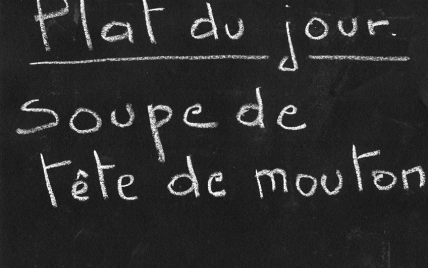 Plat du jour.
Soupe de
tête de mouton